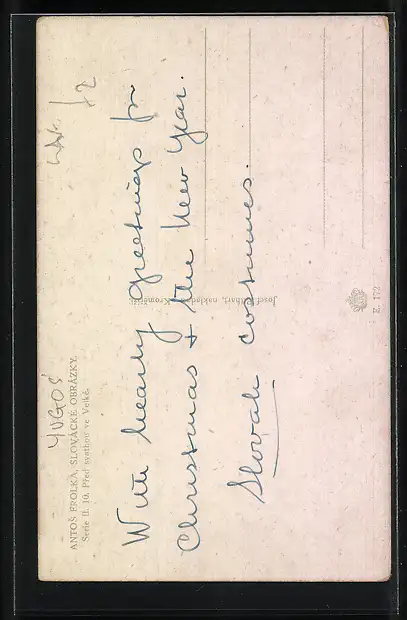 YUGOS
ANTOŠ FROLKA, SLOVÁCKÉ OBRÁZKY.
Serie II. 10. Před svatbou ve Velké.
With hearty greetings for
Christmas & the New Year.
Slovak costumes.
E. 172